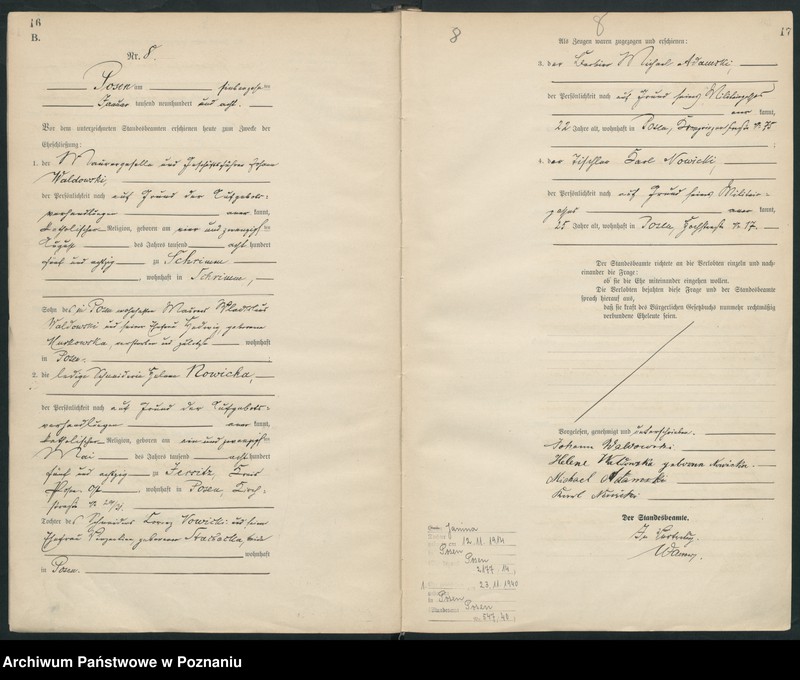 16
B.
Nr. 8.
Posen am siebenzehn
Januar tausend neunhundert und acht.
Vor dem unterzeichneten Standesbeamten erschienen heute zum Zwecke der
Eheschließung:
1. der Maurergeselle und Geschäftsführer Johann
Waldowski,
der Persönlichkeit nach auf Grund der Aufgebots-
verhandlungen kannt,
katholischer Religion, geboren am vier und zwanzigsten
August des Jahres tausend acht hundert
fünf und achtzig zu Schrimm
, wohnhaft in Schrimm,
Sohn des in Posen wohnhaften Maurers Wladislaus
Waldowski und seiner Ehefrau Hedwig, geborene
Murkowska, verstorben und zuletzt wohnhaft
in Posen.
2. die ledige Schneiderin Helene Nowicka,
der Persönlichkeit nach auf Grund der Aufgebots-
verhandlungen kannt,
katholischer Religion, geboren am ein und zwanzigsten
Mai des Jahres tausend acht hundert
fünf und achtzig zu Jersitz, Kreis
Posen Ost, wohnhaft in Posen,
Tochter des Schneiders Nowicki und seiner
Ehefrau geborenen beide
wohnhaft
in Posen.
8
8
17
Als Zeugen waren zugezogen und erschienen:
3. der Barbier Michael Adamski,
der Persönlichkeit nach auf Grund seines Militärpasses
kannt,
22 Jahre alt, wohnhaft in Posen, Kronprinzenstraße Nr. 75
;
4. der Tischler Karl Nowicki,
der Persönlichkeit nach auf Grund seines Militär-
passes kannt,
25 Jahre alt, wohnhaft in Posen, Nr. 17.
Der Standesbeamte richtete an die Verlobten einzeln und nach-
einander die Frage:
ob sie die Ehe miteinander eingehen wollen.
Die Verlobten bejahten diese Frage und der Standesbeamte
sprach hierauf aus,
daß sie kraft des Bürgerlichen Gesetzbuchs nunmehr rechtmäßig
verbundene Eheleute seien.
Vorgelesen, genehmigt und unterschrieben.
Johann Waldowski
Helene Waldowska geborene Nowicka.
Michael Adamski
Karl Nowicki
Der Standesbeamte.
In Vertretung
Janina
12.11.1911
Posen
Posen
2177 14
1
23.11.1940
Posen
Posen
843/40
Archiwum Państwowe w Poznaniu